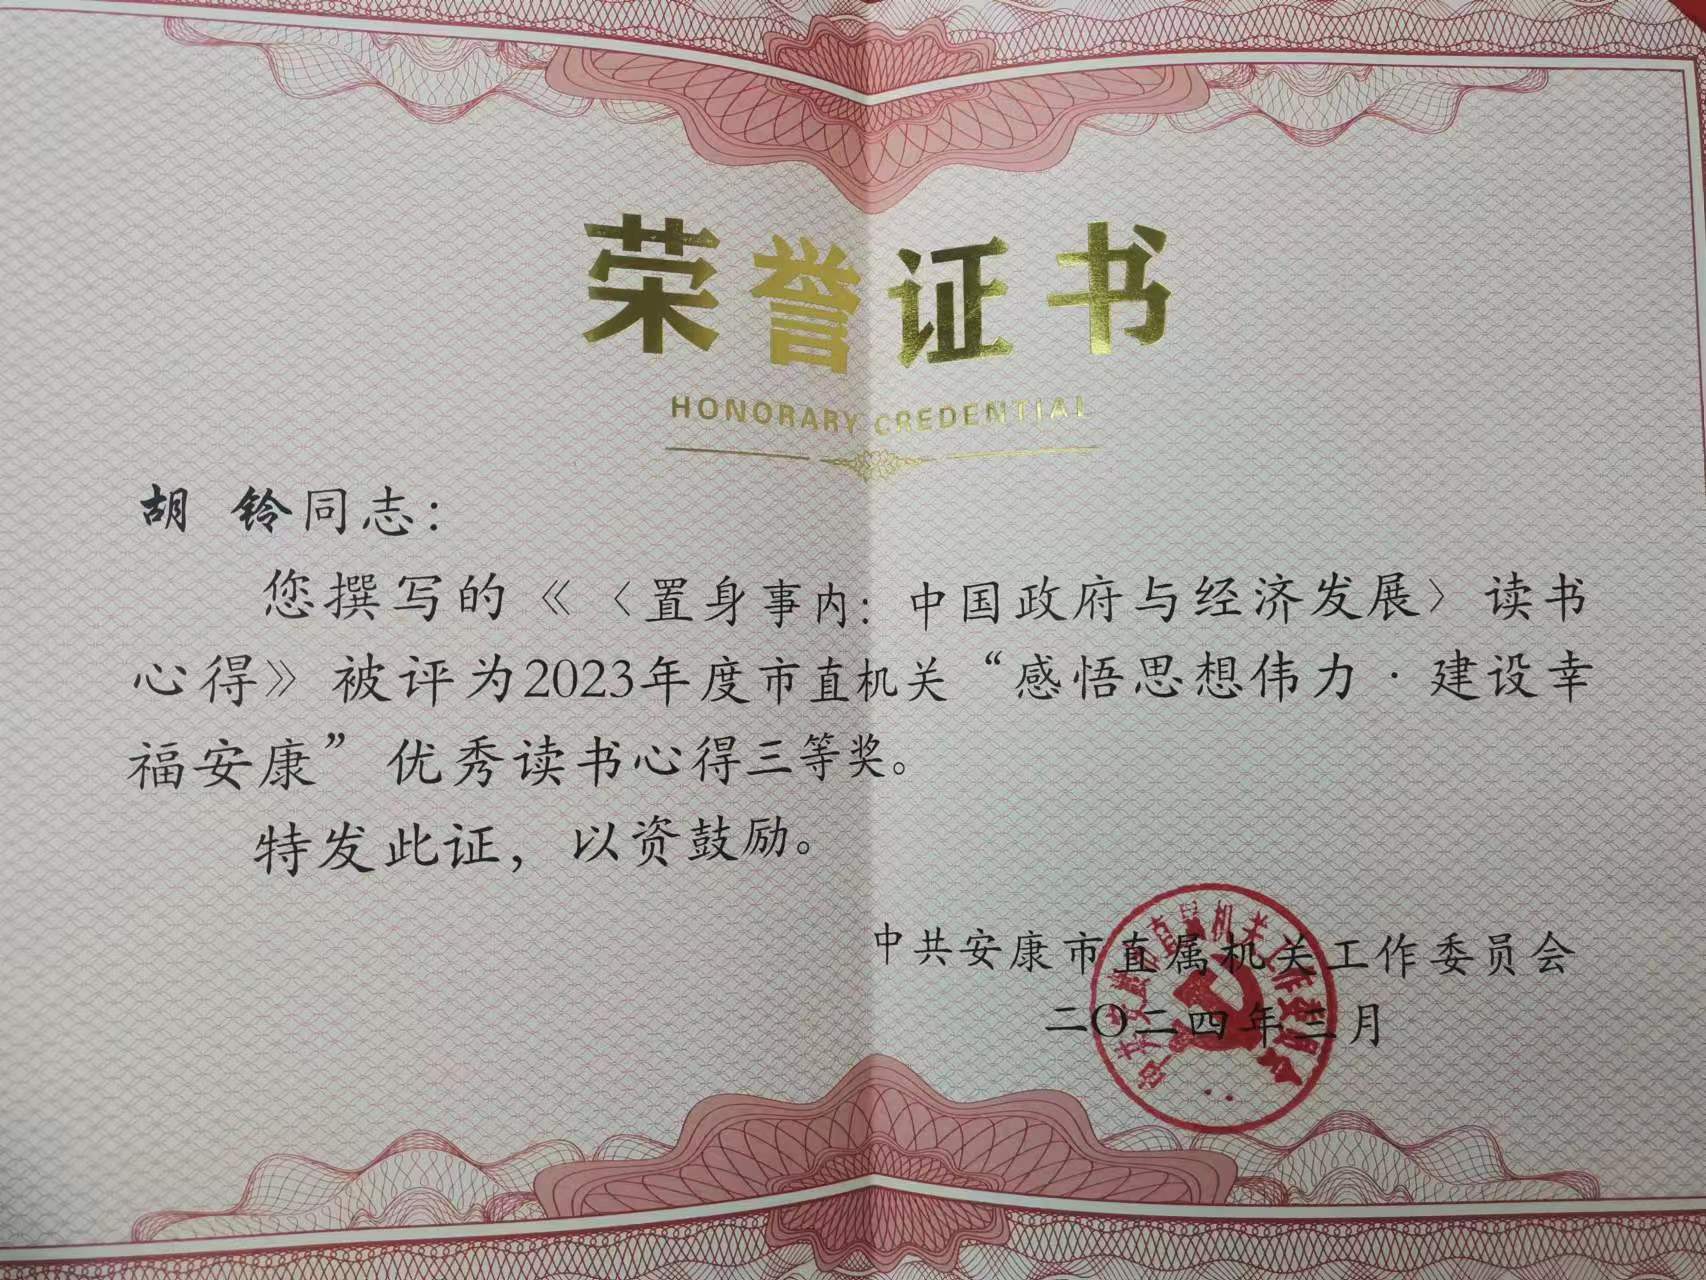 荣誉证书
HONORARY CREDENTIAL
胡 铃同志：
您撰写的《〈置身事内：中国政府与经济发展〉读书
心得》被评为2023年度市直机关“感悟思想伟力·建设幸
福安康”优秀读书心得三等奖。
特发此证，以资鼓励。
中共安康市直属机关工作委员会
二〇二四年三月
中共安康市直属机关工作委员会